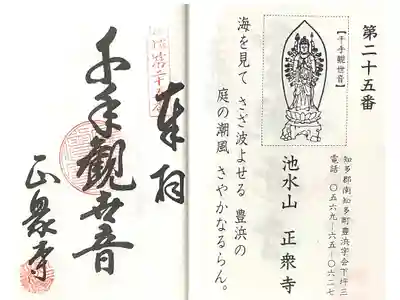 第二十五番
【千手観世音】
知多郡南知多町豊浜字会下坪三
電話 〇五六九-六五-〇六二七
池水山 正衆寺
海を見て さざ波よせる 豊浜の
庭の潮風 さやかなるらん。
奉拝
千手観世音
正衆寺